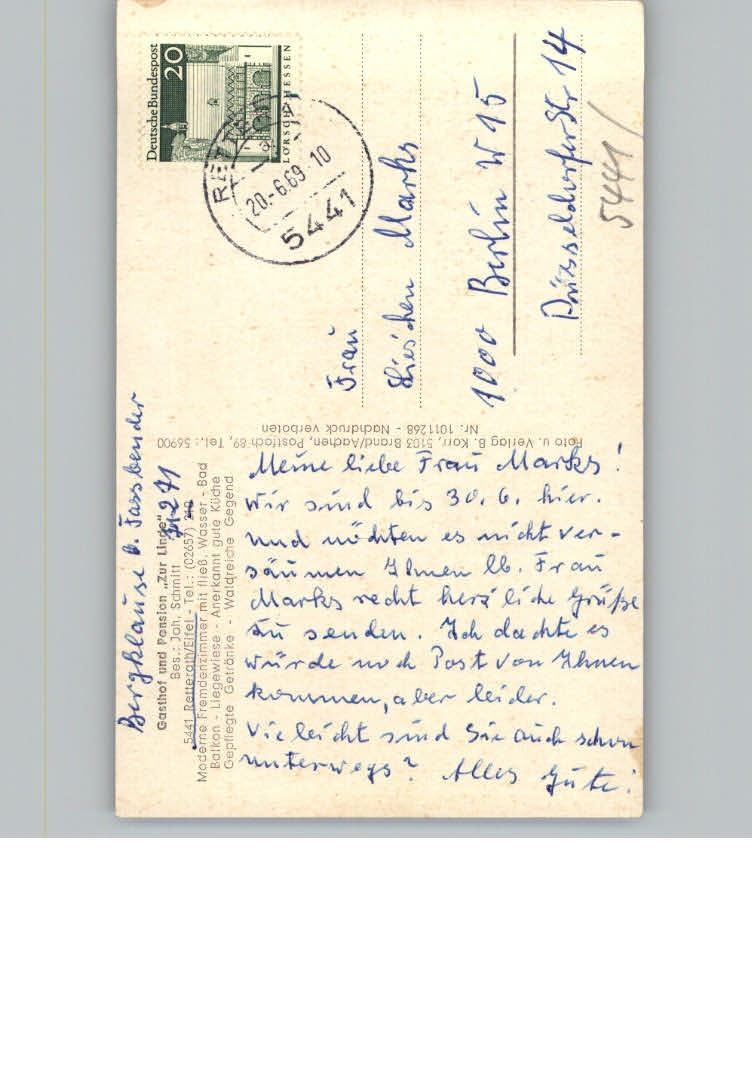 Bergklause b. Fassbender
Gasthof und Pension „Zur Linde"
Bes.: Joh. Schmitt
5441 Retterath/Eifel - Tel.: (02657) 271
Moderne Fremdenzimmer mit fließ. Wasser - Bad
Balkon - Liegewiese - Anerkannt gute Küche
Gepflegte Getränke - Waldreiche Gegend
Meine liebe Frau Marks!
Wir sind bis 30. 6. hier.
und möchten es nicht ver-
säumen Ihnen lb. Frau
Marks recht herzliche Grüße
zu senden. Ich dachte es
würde noch Post von Ihnen
kommen, aber leider.
Vieleicht sind Sie auch schon
unterwegs? Alles Gute!
Foto u. Verlag B. Korr, 5103 Brand/Aachen, Postfach 89, Tel.: 56900
Nr. 1011268 - Nachdruck verboten
Deutsche Bundespost
20
LORSCH HESSEN
RETTERATH
20.-6.69-10
5441
Frau
Lieschen Marks
1000 Berlin W 15
Düsseldorfer Str 14
5441/